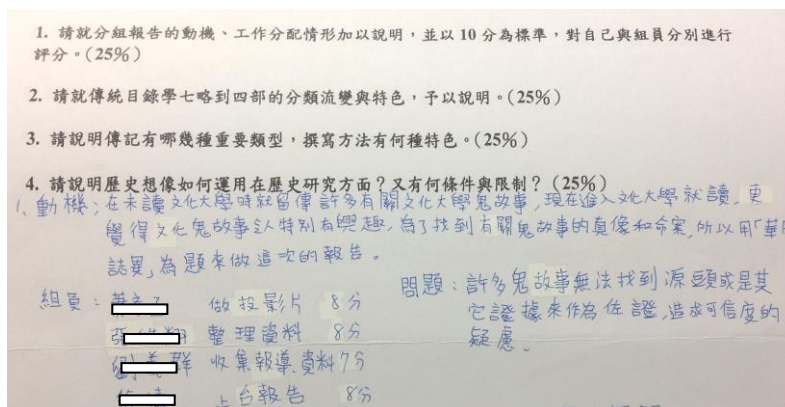 1. 請就分組報告的動機、工作分配情形加以說明，並以 10 分為標準，對自己與組員分別進行
評分。(25%)
2. 請就傳統目錄學七略到四部的分類流變與特色，予以說明。(25%)
3. 請說明傳記有哪幾種重要類型，撰寫方法有何種特色。(25%)
4. 請說明歷史想像如何運用在歷史研究方面？又有何條件與限制？(25%)
1、動機：在未讀文化大學時就留傳許多有關文化大學鬼故事，現在進入文化大學就讀，更
覺得文化鬼故事令人特別有興趣，為了找到有關鬼故事的真像和命案，所以用「華
誌異」為題來做這次的報告。
組員：
做投影片 8分
整理資料 8分
群 收集報導資料 7分
上台報告 8分
問題：許多鬼故事無法找到源頭或是其
它證據來作為佐證，造成可信度的
疑慮。